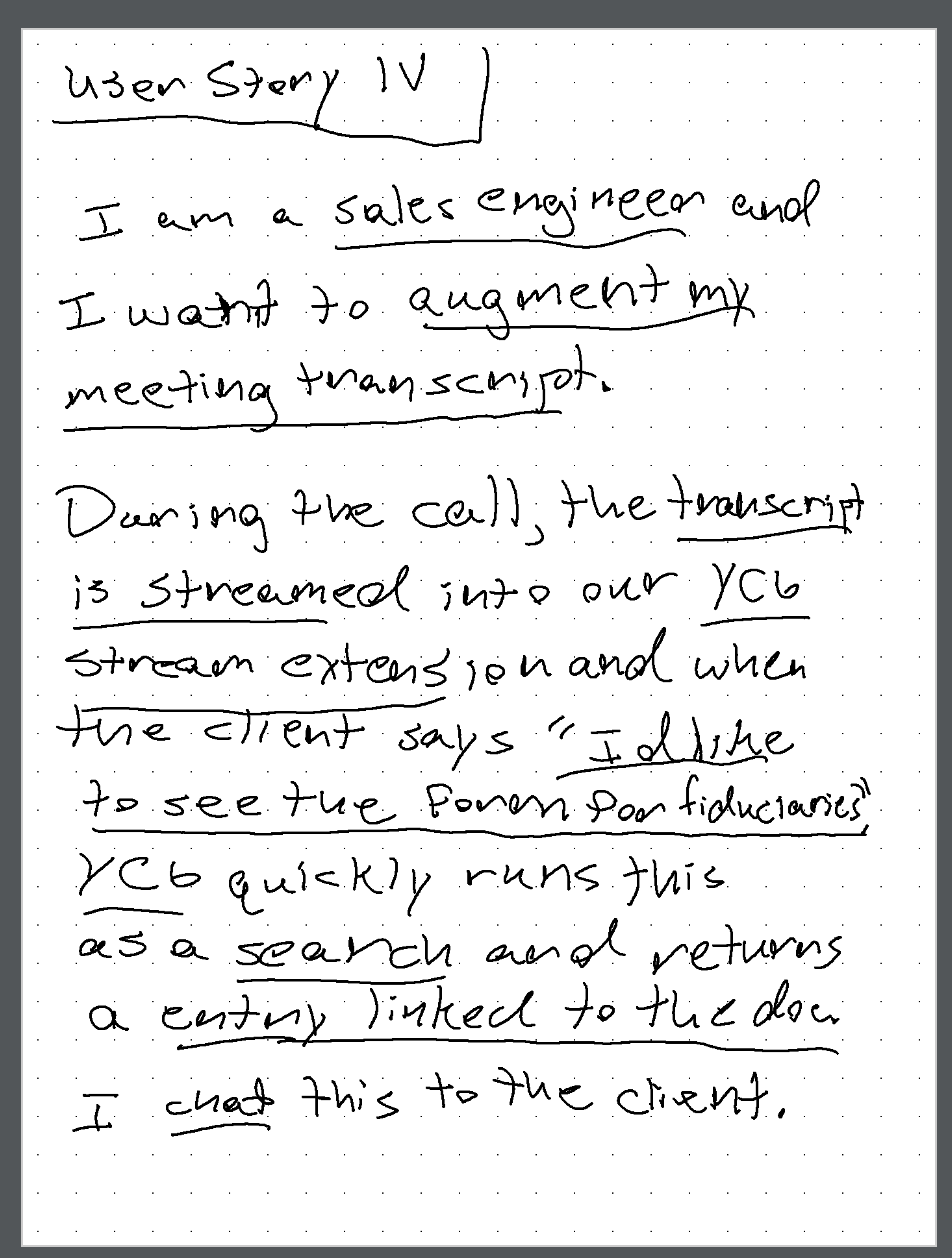 User Story IV
I am a sales engineer and
I want to augment my
meeting transcript.
During the call, the transcript
is streamed into our YC6
stream extension and when
the client says "I'd like
to see the for fiduciaries"
YC6 quickly runs this
as a search and returns
a entry linked to the doc
I chat this to the client.